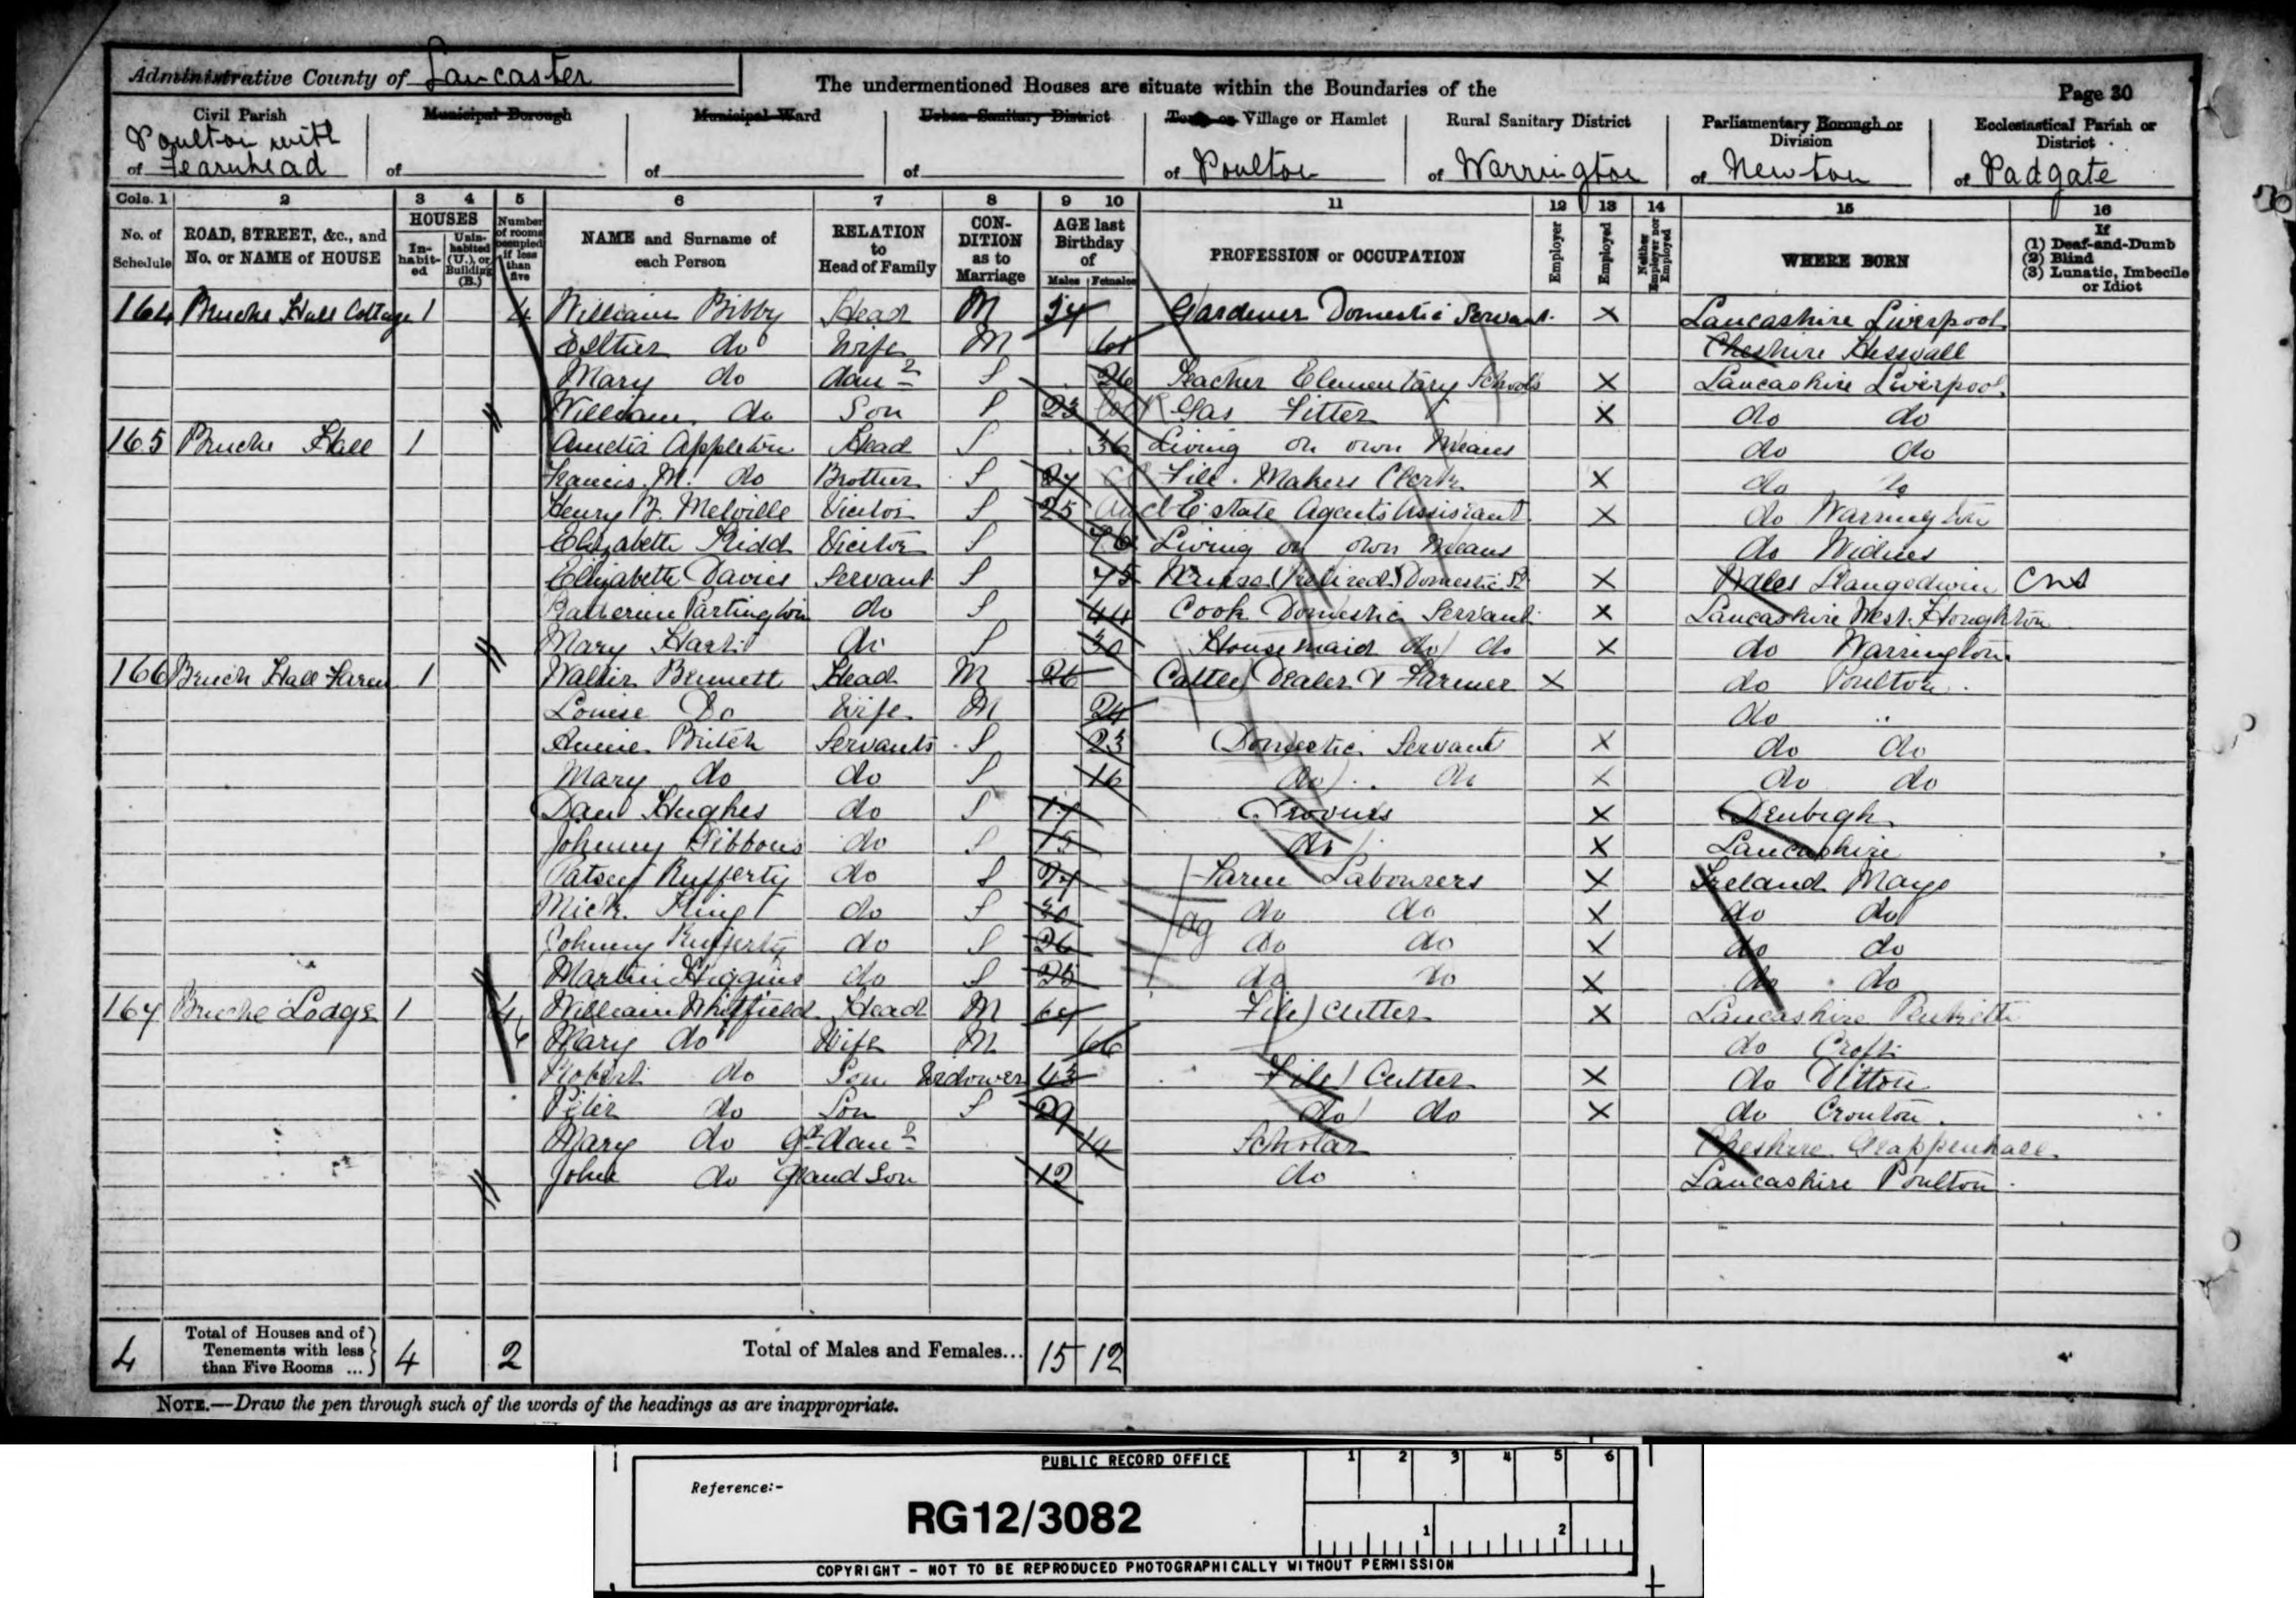 Administrative County of Lancaster
The undermentioned Houses are situate within the Boundaries of the
Page 30
Civil Parish of Poulton with Fearnhead
Municipal Borough of
Municipal Ward of
Urban Sanitary District of
Town or Village or Hamlet of Poulton
Rural Sanitary District of Warrington
Parliamentary Borough or Division of Newton
Ecclesiastical Parish or District of Padgate
Cols. 1 2 3 4 5 6 7 8 9 10 11 12 13 14 15 16
No. of Schedule
ROAD, STREET, &c., and No. or NAME of HOUSE
HOUSES
In-habit-ed
Unin-habited (U.), or Building (B.)
Number of rooms occupied if less than five
NAME and Surname of each Person
RELATION to Head of Family
CON-DITION as to Marriage
AGE last Birthday of
Males Females
PROFESSION or OCCUPATION
Employer
Employed
Neither Employer nor Employed
WHERE BORN
If
(1) Deaf-and-Dumb
(2) Blind
(3) Lunatic, Imbecile or Idiot
164 Bruche Hall Cottage 1 4 William Bibby Head M 54 Gardener Domestic Servant X Lancashire Liverpool
Esther do Wife M 61 Cheshire Heswall
Mary do daur S 26 Teacher Elementary Schools X Lancashire Liverpool
William do Son S 23 Gas Fitter X do do
165 Bruche Hall 1 Amelia Appleton Head S 36 Living on own Means do do
Francis M. do Brother S 27 File Makers Clerk X do do
Henry Melville Visitor S 25 Estate Agents Assistant X do Warrington
Elizabeth Kidd Visitor S 76 Living on own Means do Widnes
Elizabeth Davies Servant S 75 Nurse (retired) Domestic X Wales Llangedwin
Catherine Partington do S 44 Cook Domestic Servant X Lancashire West Houghton
Mary do S 30 Housemaid do do X do Warrington
166 Bruch Hall Farm 1 Walter Bennett Head M 26 Cattle Dealer & Farmer X do Poulton
Louise Do Wife M 24 do "
Annie Britch Servants S 23 Domestic Servant X do do
Mary do do S 16 do do X do do
Dan Hughes do S 17 X Denbigh
Johnny Gibbons do S 15 do X Lancashire
Patsey Rufferty do S 27 Farm Labourers X Ireland Mayo
Mick King do S 30 ag do do X do do
Johnny Rufferty do S 26 do do X do do
Martin Higgins do S 25 do do X do do
167 Bruche Lodge 1 4 William Whitfield Head M 67 File Cutter X Lancashire
6 Mary do Wife M 66 do Croft
Robert do Son Widower 43 File Cutter X do Ditton
Peter do Son S 29 do do X do Cronton
Mary do gd daur 14 Scholar Cheshire Grappenhall
John do Grand Son 12 do Lancashire Poulton
4 Total of Houses and of Tenements with less than Five Rooms ... 4 2 Total of Males and Females... 15 12
NOTE.—Draw the pen through such of the words of the headings as are inappropriate.
PUBLIC RECORD OFFICE
1 2 3 4 5 6
Reference:-
RG12/3082
1 2
COPYRIGHT - NOT TO BE REPRODUCED PHOTOGRAPHICALLY WITHOUT PERMISSION